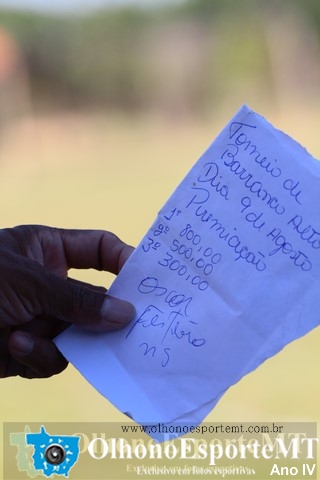 OlhonoEsporteMT
Torneio de
Barranco Alto
Dia 9 de Agosto
Purmiação
1º 800,00
2º 500,00
3º 300,00
Oscar
www.olhonoesportemt.com.br
OlhonoEsporteMT
Exclusivo em fotos esportivas
Ano IV